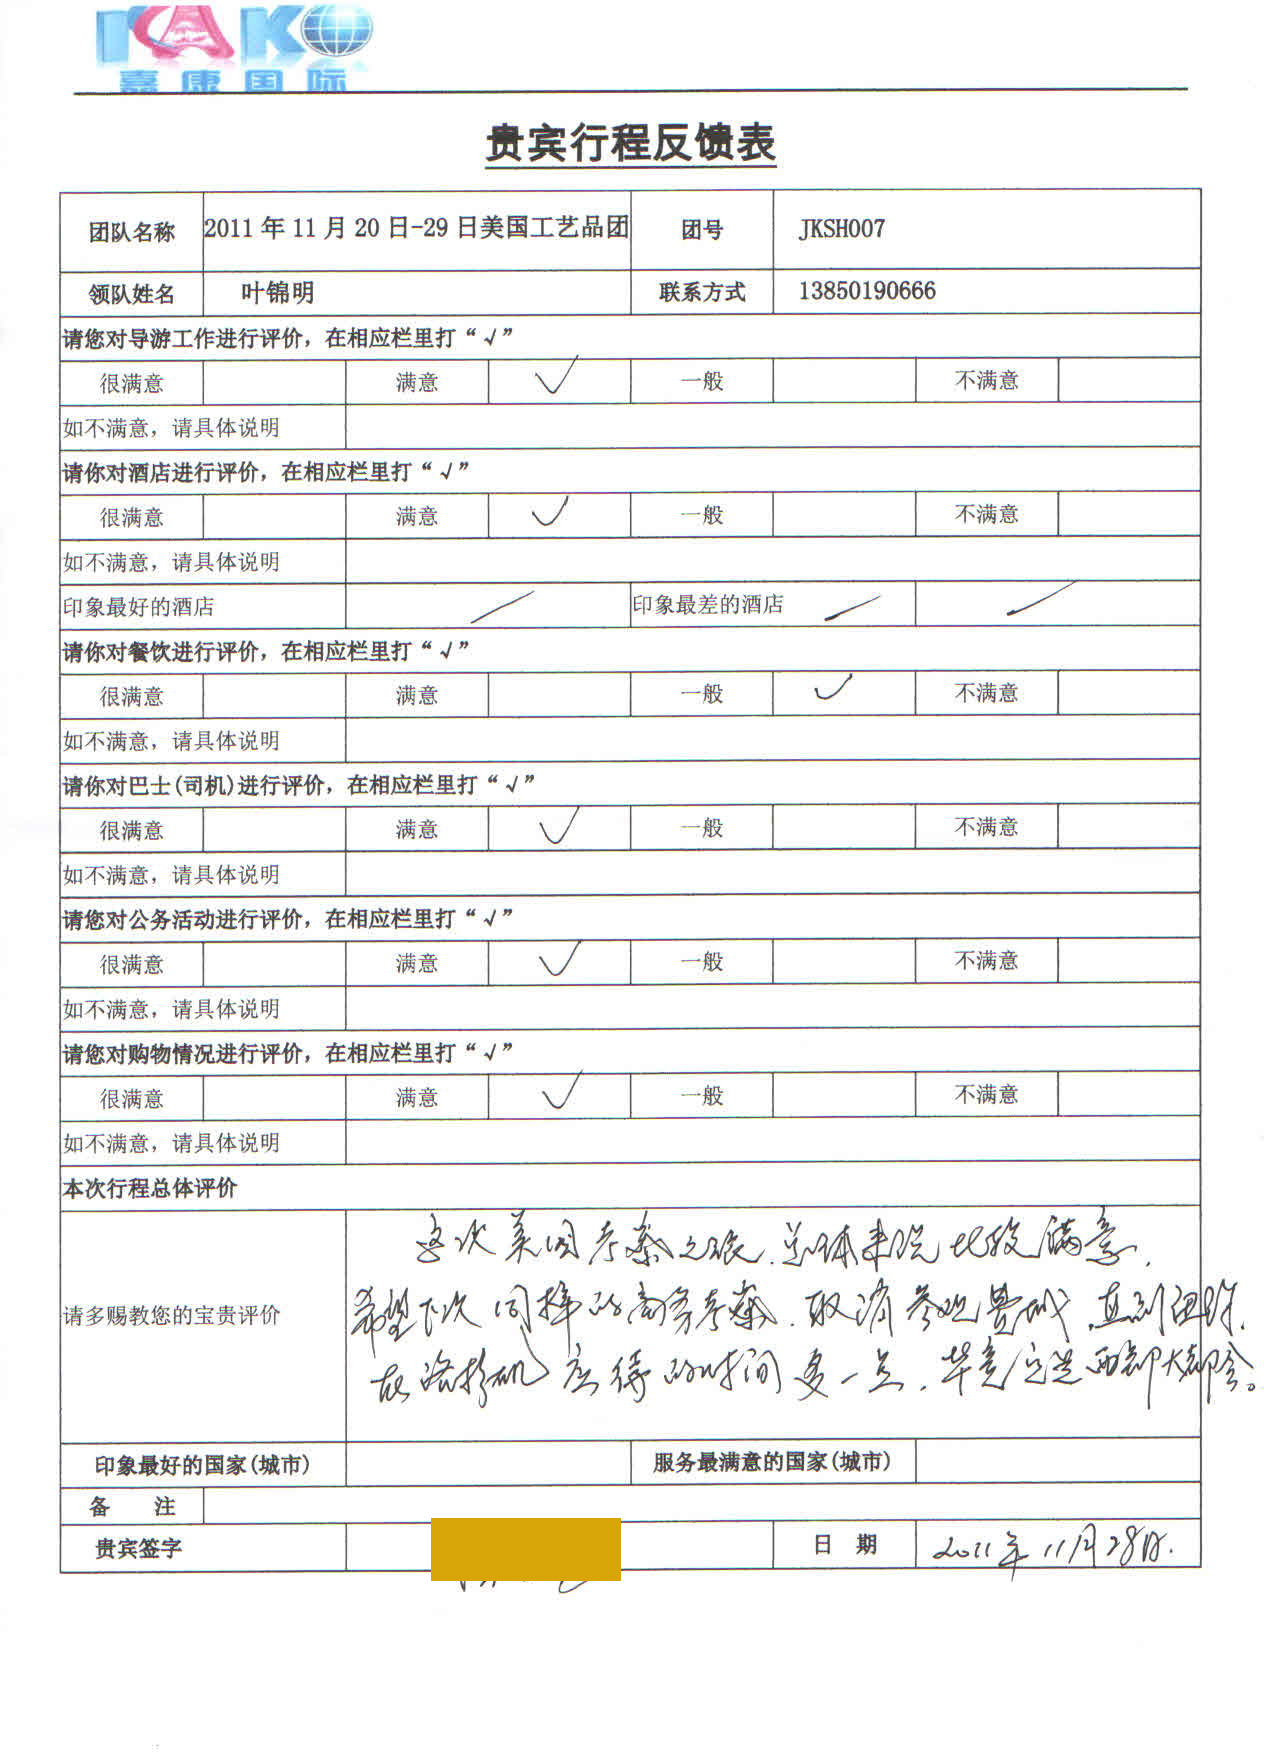 KAKO
嘉康国际
贵宾行程反馈表
团队名称 2011年11月20日-29日美国工艺品团 团号 JKSH007
领队姓名 叶锦明 联系方式 13850190666
请您对导游工作进行评价，在相应栏里打“√”
很满意 满意 ✓ 一般 不满意
如不满意，请具体说明
请你对酒店进行评价，在相应栏里打“√”
很满意 满意 ✓ 一般 不满意
如不满意，请具体说明
印象最好的酒店 印象最差的酒店
请你对餐饮进行评价，在相应栏里打“√”
很满意 满意 一般 ✓ 不满意
如不满意，请具体说明
请你对巴士(司机)进行评价，在相应栏里打“√”
很满意 满意 ✓ 一般 不满意
如不满意，请具体说明
请您对公务活动进行评价，在相应栏里打“√”
很满意 满意 ✓ 一般 不满意
如不满意，请具体说明
请您对购物情况进行评价，在相应栏里打“√”
很满意 满意 ✓ 一般 不满意
如不满意，请具体说明
本次行程总体评价
请多赐教您的宝贵评价
这次美国考察之旅，总体来说比较满意，
希望下次同样的商务考察，取消参观费城，直到纽约，
在洛杉矶应待的时间多一点，毕竟它是西部大都会。
印象最好的国家(城市) 服务最满意的国家(城市)
备 注
贵宾签字 日 期 2011年11月28日.